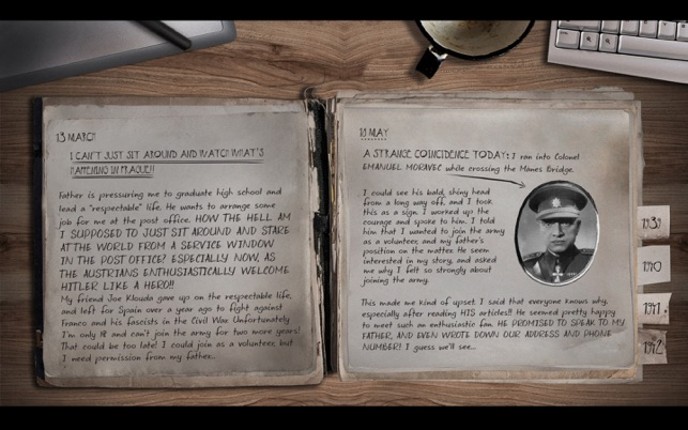 13 MARCH
I CAN'T JUST SIT AROUND AND WATCH WHAT'S
HAPPENING IN PRAGUE!!
Father is pressuring me to graduate high school and
lead a "respectable" life. He wants to arrange some
job for me at the post office. HOW THE HELL AM
I SUPPOSED TO JUST SIT AROUND AND STARE
AT THE WORLD FROM A SERVICE WINDOW
IN THE POST OFFICE? ESPECIALLY NOW, AS
THE AUSTRIANS ENTHUSIASTICALLY WELCOME
HITLER LIKE A HERO!!
My friend Joe Klouda gave up on the respectable life,
and left for Spain over a year ago to fight against
Franco and his fascists in the Civil War. Unfortunately
I'm only 18 and can't join the army for two more years!
That could be too late! I could join as a volunteer, but
I need permission from my father..
10 MAY
A STRANGE COINCIDENCE TODAY: I ran into Colonel
EMANUEL MORAVEC while crossing the Mánes Bridge.
I could see his bald, shiny head
from a long way off, and I took
this as a sign. I worked up the
courage and spoke to him. I told
him that I wanted to join the army
as a volunteer, and my father's
position on the matter. He seem
interested in my story, and asked
me why I felt so strongly about
joining the army.
This made me kind of upset. I said that everyone knows why,
especially after reading HIS articles!! He seemed pretty happy
to meet such an enthusiastic fan. HE PROMISED TO SPEAK TO MY
FATHER, AND EVEN WROTE DOWN OUR ADDRESS AND PHONE
NUMBER! I guess we'll see...
1939
1940
1941
1942